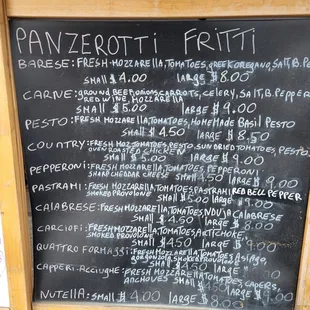 PANZEROTTI FRITTI
BARESE: FRESH MOZZARELLA, TOMATOES, GREEK OREGANO, SALT, B. P
SMALL $4.00 LARGE $8.00
CARNE: GROUND BEEF, ONIONS, CARROTS, CELERY, SALT, B. PEPPER
RED WINE, MOZZARELLA
SMALL $5.00 LARGE $9.00
PESTO: FRESH MOZZARELLA, TOMATOES, HOMEMADE BASIL PESTO
SMALL $4.50 LARGE $8.50
COUNTRY: FRESH MOZZ, TOMATOES, PESTO, SUN DRIED TOMATOES, PESTO
OVEN ROASTED CHICKEN
SMALL $5.00 LARGE $9.00
PEPPERONI: FRESH MOZZARELLA, TOMATOES, PEPPERONI
SHARP CHEDDAR CHEESE LARGE $9.00
PASTRAMI: FRESH MOZZARELLA, TOMATOES, PASTRAMI, RED BELL PEPPER
SMOKED PROVOLONE SMALL $5.00 LARGE
CALABRESE: FRESH MOZZARELLA, TOMATOES, NDUJA CALABRESE
SMALL $4.50 LARGE $8.00
CARCIOFI: FRESH MOZZARELLA, TOMATOES, ARTICHOKE
SMOKED PROVOLONE SMALL $4.50 LARGE $9.00
QUATTRO FORMAGGI: FRESH MOZZARELLA, TOMATOES, ASIAGO,
GORGONZOLA, SMOKED PROVOLONE
CAPPERI-ACCIUGHE: FRESH MOZZARELLA, TOMATOES, CAPERS,
ANCHOVIES SMALL $4.50 LARGE
NUTELLA: SMALL $4.00 LARGE $8.00